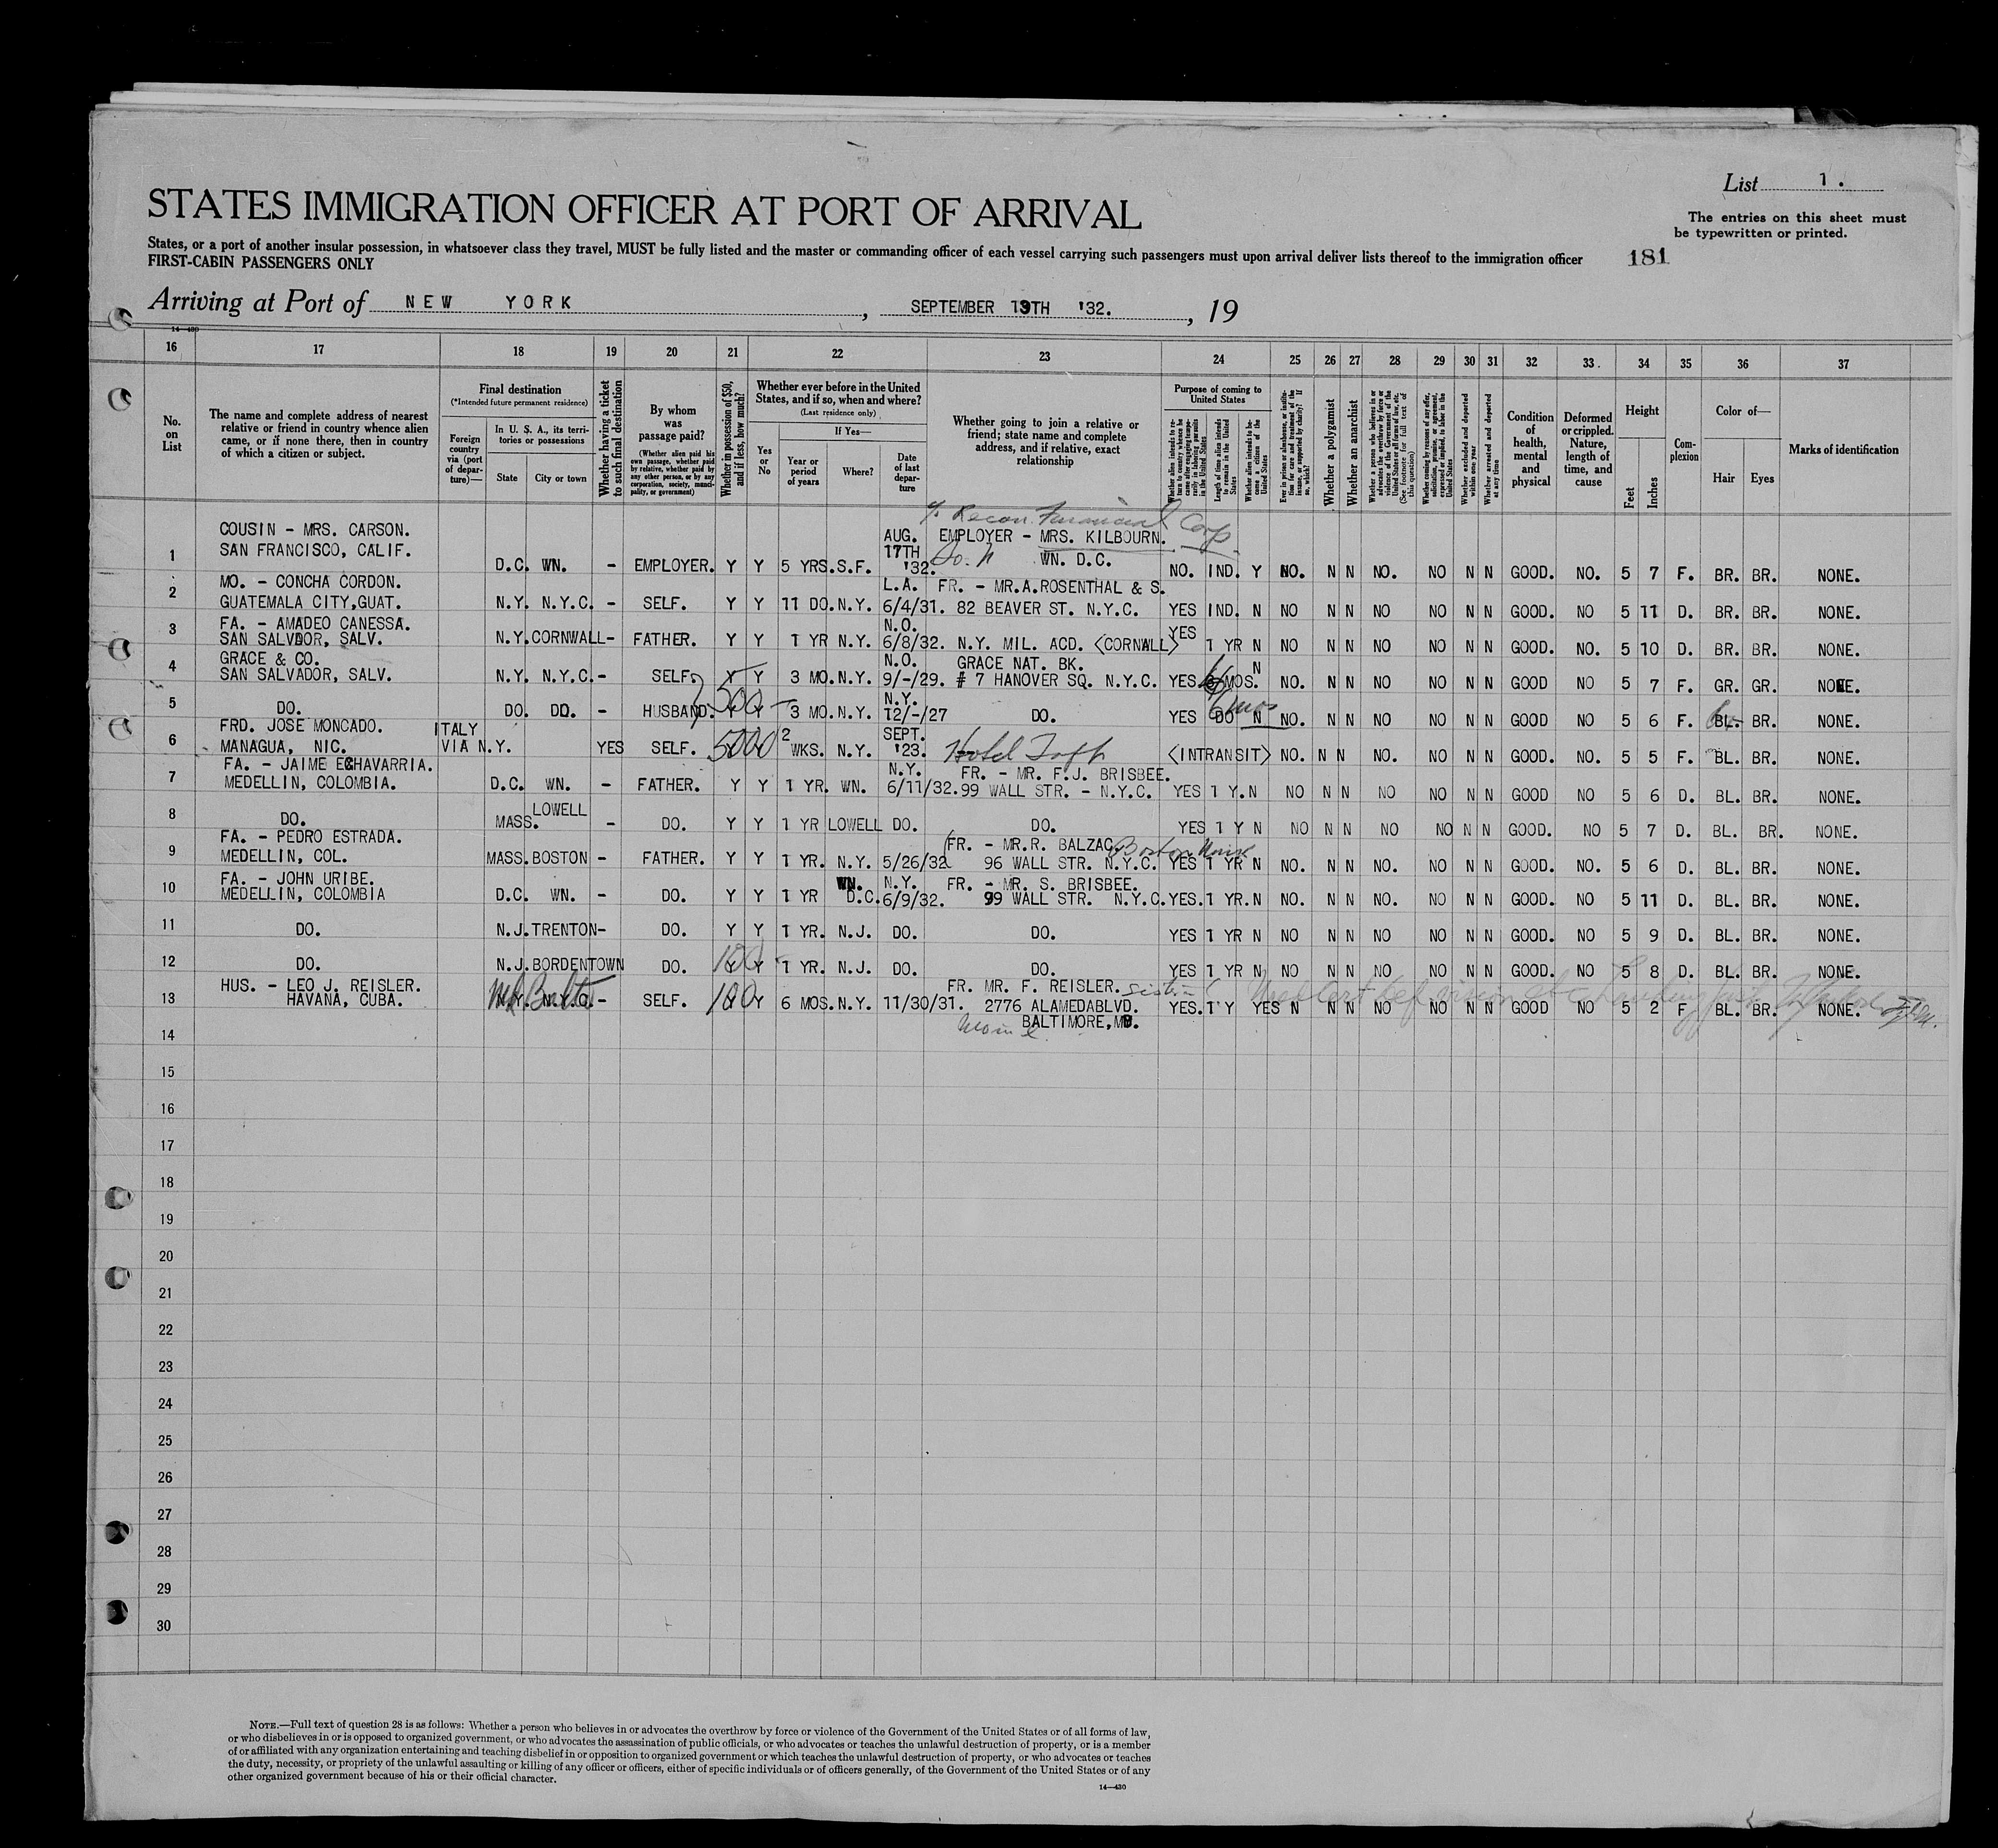 List 1.
STATES IMMIGRATION OFFICER AT PORT OF ARRIVAL
The entries on this sheet must
be typewritten or printed.
States, or a port of another insular possession, in whatsoever class they travel, MUST be fully listed and the master or commanding officer of each vessel carrying such passengers must upon arrival deliver lists thereof to the immigration officer
FIRST-CABIN PASSENGERS ONLY
181
Arriving at Port of NEW YORK, SEPTEMBER 19TH '32., 19
14—430
16 17 18 19 20 21 22 23 24 25 26 27 28 29 30 31 32 33. 34 35 36 37
No. on List
The name and complete address of nearest relative or friend in country whence alien came, or if none there, then in country of which a citizen or subject.
Final destination
(*Intended future permanent residence)
Foreign country via (port of departure)—
In U. S. A., its territories or possessions
State
City or town
Whether having a ticket to such final destination
By whom was passage paid?
(Whether alien paid his own passage, whether paid by relative, whether paid by any other person, or by any corporation, society, municipality, or government)
Whether in possession of $50, and if less, how much?
Whether ever before in the United States, and if so, when and where?
(Last residence only)
Yes or No
If Yes—
Year or period of years
Where?
Date of last departure
Whether going to join a relative or friend; state name and complete address, and if relative, exact relationship
Purpose of coming to United States
Length of time alien intends to remain in the United States
Whether alien intends to become a citizen of the United States
Whether a polygamist
Whether an anarchist
Whether excluded and deported within one year
Whether arrested and deported at any time
Condition of health, mental and physical
Deformed or crippled. Nature, length of time, and cause
Height
Feet
Inches
Complexion
Color of—
Hair
Eyes
Marks of identification
c/o Recon. Financial Corp
COUSIN - MRS. CARSON. AUG. EMPLOYER - MRS. KILBOURN.
1 SAN FRANCISCO, CALIF. D.C. WN. - EMPLOYER. Y Y 5 YRS. S.F. 17TH '32. WN. D.C. NO. IND. Y NO. N N NO. NO N N GOOD. NO. 5 7 F. BR. BR. NONE.
MO. - CONCHA CORDON. L.A. FR. - MR.A.ROSENTHAL & S.
2 GUATEMALA CITY,GUAT. N.Y. N.Y.C. - SELF. Y Y 11 DO. N.Y. 6/4/31. 82 BEAVER ST. N.Y.C. YES IND. N NO N N NO NO N N GOOD. NO 5 11 D. BR. BR. NONE.
FA. - AMADEO CANESSA. N.O.
3 SAN SALVADOR, SALV. N.Y. CORNWALL - FATHER. Y Y 1 YR N.Y. 6/8/32. N.Y. MIL. ACD. (CORNWALL) YES 1 YR N NO N N NO NO N N GOOD. NO. 5 10 D. BR. BR. NONE.
GRACE & CO. N.O. GRACE NAT. BK.
4 SAN SALVADOR, SALV. N.Y. N.Y.C. - SELF. Y Y 3 MO. N.Y. 9/-/29. # 7 HANOVER SQ. N.Y.C. YES 6 MOS. N NO. N N NO NO N N GOOD NO 5 7 F. GR. GR. NONE.
500 N.Y. 6 mos
5 DO. DO. DO. - HUSBAND. Y Y 3 MO. N.Y. 12/-/27 DO. YES DO N NO. N N NO NO N N GOOD NO 5 6 F. BL. BR. NONE.
FRD. JOSE MONCADO. ITALY 2 SEPT.
6 MANAGUA, NIC. VIA N.Y. YES SELF. 5000 WKS. N.Y. '23. Hotel Taft (INTRANSIT) NO. N N NO. NO N N GOOD. NO. 5 5 F. BL. BR. NONE.
FA. - JAIME ECHAVARRIA. N.Y. FR. - MR. F.J. BRISBEE.
7 MEDELLIN, COLOMBIA. D.C. WN. - FATHER. Y Y 1 YR. WN. 6/11/32. 99 WALL STR. - N.Y.C. YES 1 Y. N NO N N NO NO N N GOOD NO 5 6 D. BL. BR. NONE.
8 DO. MASS. LOWELL - DO. Y Y 1 YR LOWELL DO. DO. YES 1 Y N NO N N NO NO N N GOOD. NO 5 7 D. BL. BR. NONE.
FA. - PEDRO ESTRADA. FR. - MR.R. BALZAC. Boston
9 MEDELLIN, COL. MASS. BOSTON - FATHER. Y Y 1 YR. N.Y. 5/26/32 96 WALL STR. N.Y.C. YES 1 YR N NO. N N NO. NO N N GOOD. NO. 5 6 D. BL. BR. NONE.
FA. - JOHN URIBE. WN. N.Y. FR. - MR. S. BRISBEE.
10 MEDELLIN, COLOMBIA D.C. WN. - DO. Y Y 1 YR D.C. 6/9/32. 99 WALL STR. N.Y.C. YES. 1 YR. N NO. N N NO. NO N N GOOD. NO 5 11 D. BL. BR. NONE.
11 DO. N.J. TRENTON - DO. Y Y 1 YR. N.J. DO. DO. YES 1 YR N NO N N NO NO N N GOOD. NO 5 9 D. BL. BR. NONE.
12 DO. N.J. BORDENTOWN DO. 100 Y Y 1 YR. N.J. DO. DO. YES 1 YR N NO N N NO NO N N GOOD. NO 5 8 D. BL. BR. NONE.
HUS. - LEO J. REISLER. Md Balto FR. MR. F. REISLER.
13 HAVANA, CUBA. N.Y. N.Y.C. - SELF. 100 Y Y 6 MOS. N.Y. 11/30/31. 2776 ALAMEDABLVD. YES. 1 Y YES N N N NO NO N N GOOD NO 5 2 F BL. BR. NONE.
BALTIMORE, MD.
14
15
16
17
18
19
20
21
22
23
24
25
26
27
28
29
30
NOTE.—Full text of question 28 is as follows: Whether a person who believes in or advocates the overthrow by force or violence of the Government of the United States or of all forms of law,
or who disbelieves in or is opposed to organized government, or who advocates the assassination of public officials, or who advocates or teaches the unlawful destruction of property, or is a member
of or affiliated with any organization entertaining and teaching disbelief in or opposition to organized government or which teaches the unlawful destruction of property, or who advocates or teaches
the duty, necessity, or propriety of the unlawful assaulting or killing of any officer or officers, either of specific individuals or of officers generally, of the Government of the United States or of any
other organized government because of his or their official character.
14—430